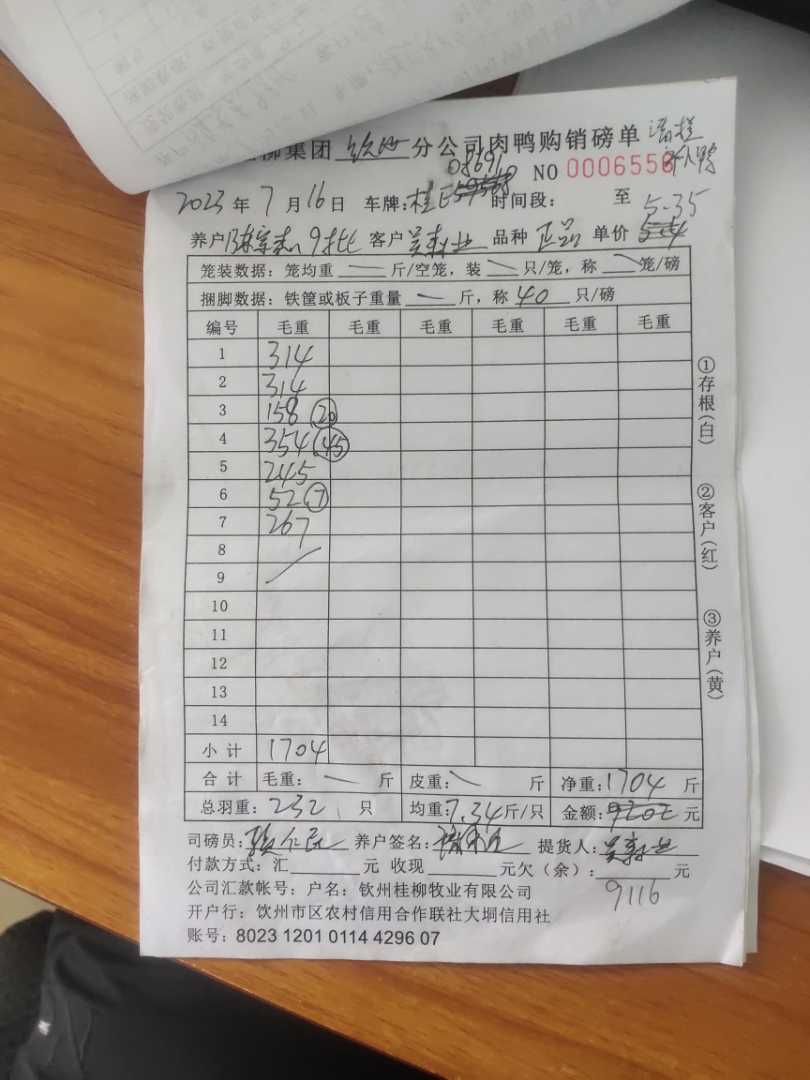 柳集团 钦州 分公司肉鸭购销磅单
NO 0006556
2023年7月16日 车牌:桂E 08691 时间段: 至
养户 9批 客户 品种 正品 单价 5.4 5.35
笼装数据:笼均重 — 斤/空笼,装 — 只/笼,称 — 笼/磅
捆脚数据:铁筐或板子重量 — 斤,称 40 只/磅
编号 毛重 毛重 毛重 毛重 毛重 毛重
1 314
2 314
3 158 20
4 354 45
5 245
6 52 7
7 267
8
9
10
11
12
13
14
小计 1704
合计 毛重: — 斤 皮重: 斤 净重:1704 斤
总羽重:232 只 均重:7.34斤/只 金额:9202 元
司磅员: 养户签名: 提货人:
付款方式:汇 元 收现 元欠(余): 元
9116
公司汇款帐号:户名:钦州桂柳牧业有限公司
开户行:饮州市区农村信用合作联社大垌信用社
账号:8023 1201 0114 4296 07
①存根(白)
②客户(红)
③养户(黄)